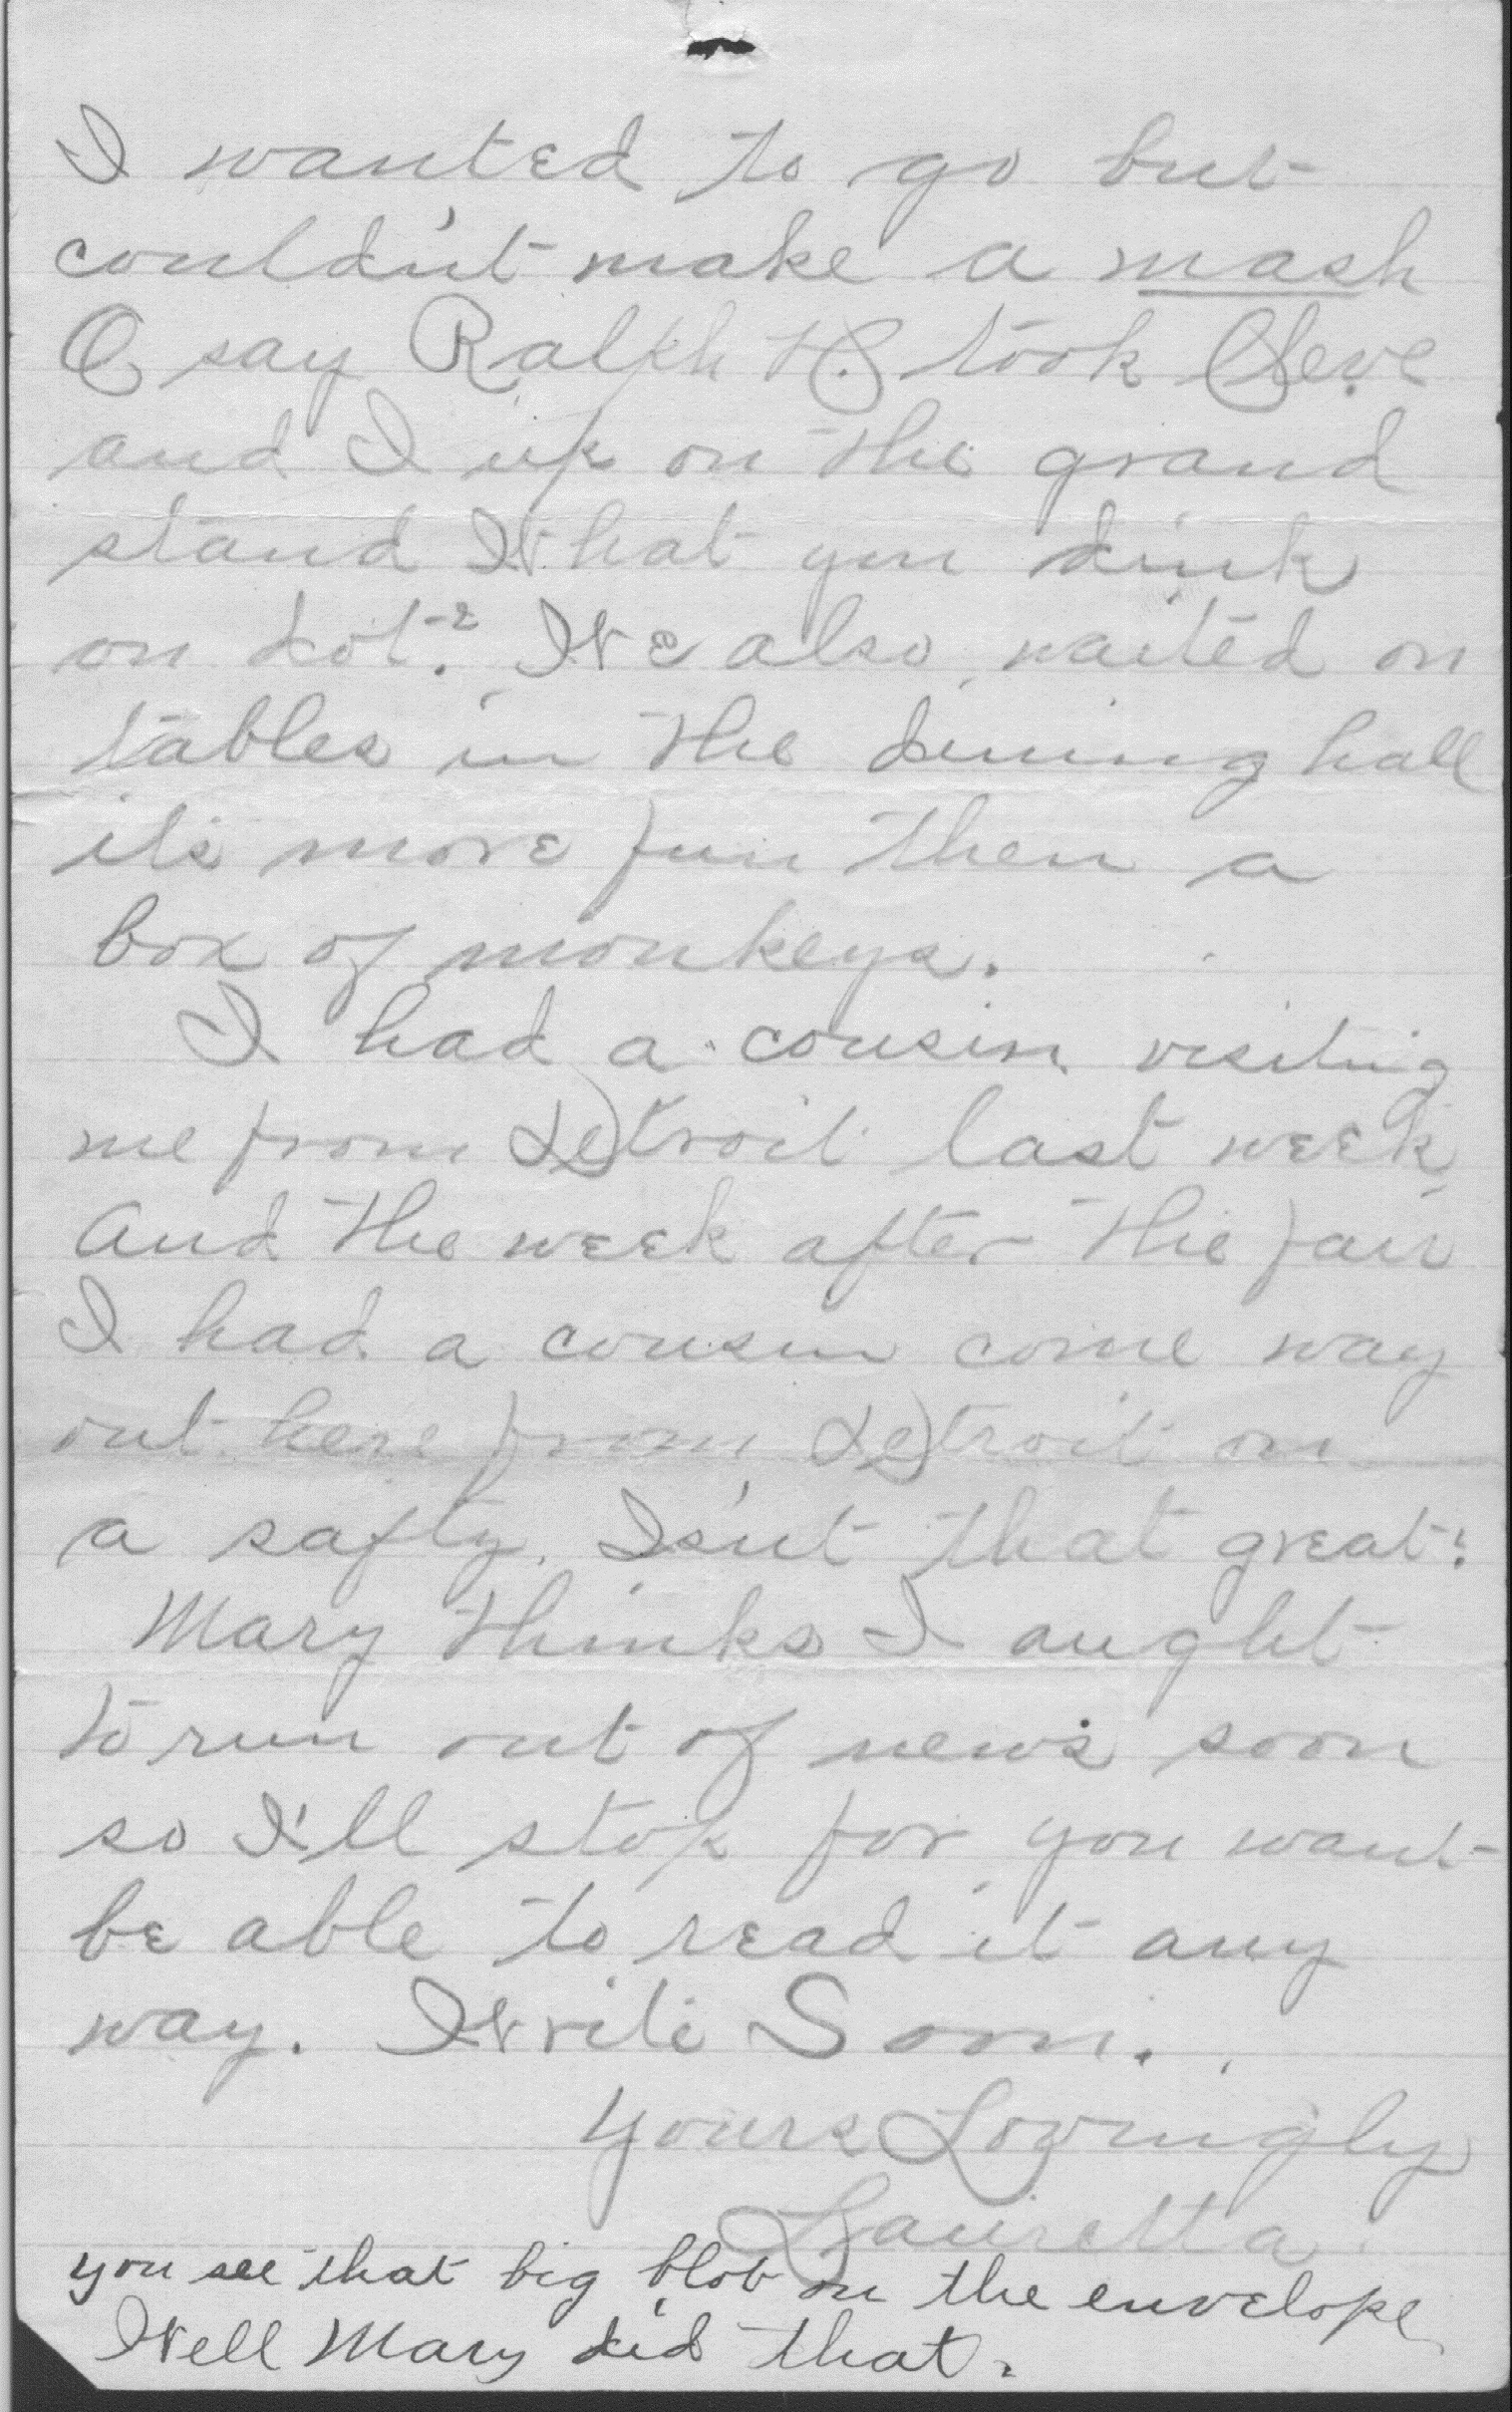 I wanted to go but
couldn't make a mash
O say Ralph H. took Cleve
and I up on the grand
stand What you dink
on dot? We also waited on
tables in the dining hall
it's more fun then a
box of monkeys.
I had a cousin visiting
me from Detroit last week
And the week after the fair
I had a cousin come way
out here from Detroit on
a safty. Isn't that great!
Mary thinks I aught
to run out of news soon
so I'll stop for you want
be able to read it any
way. Write Soon.
Yours Lovingly
Lauretta.
you see that big blob on the envelope
Well Mary did that.